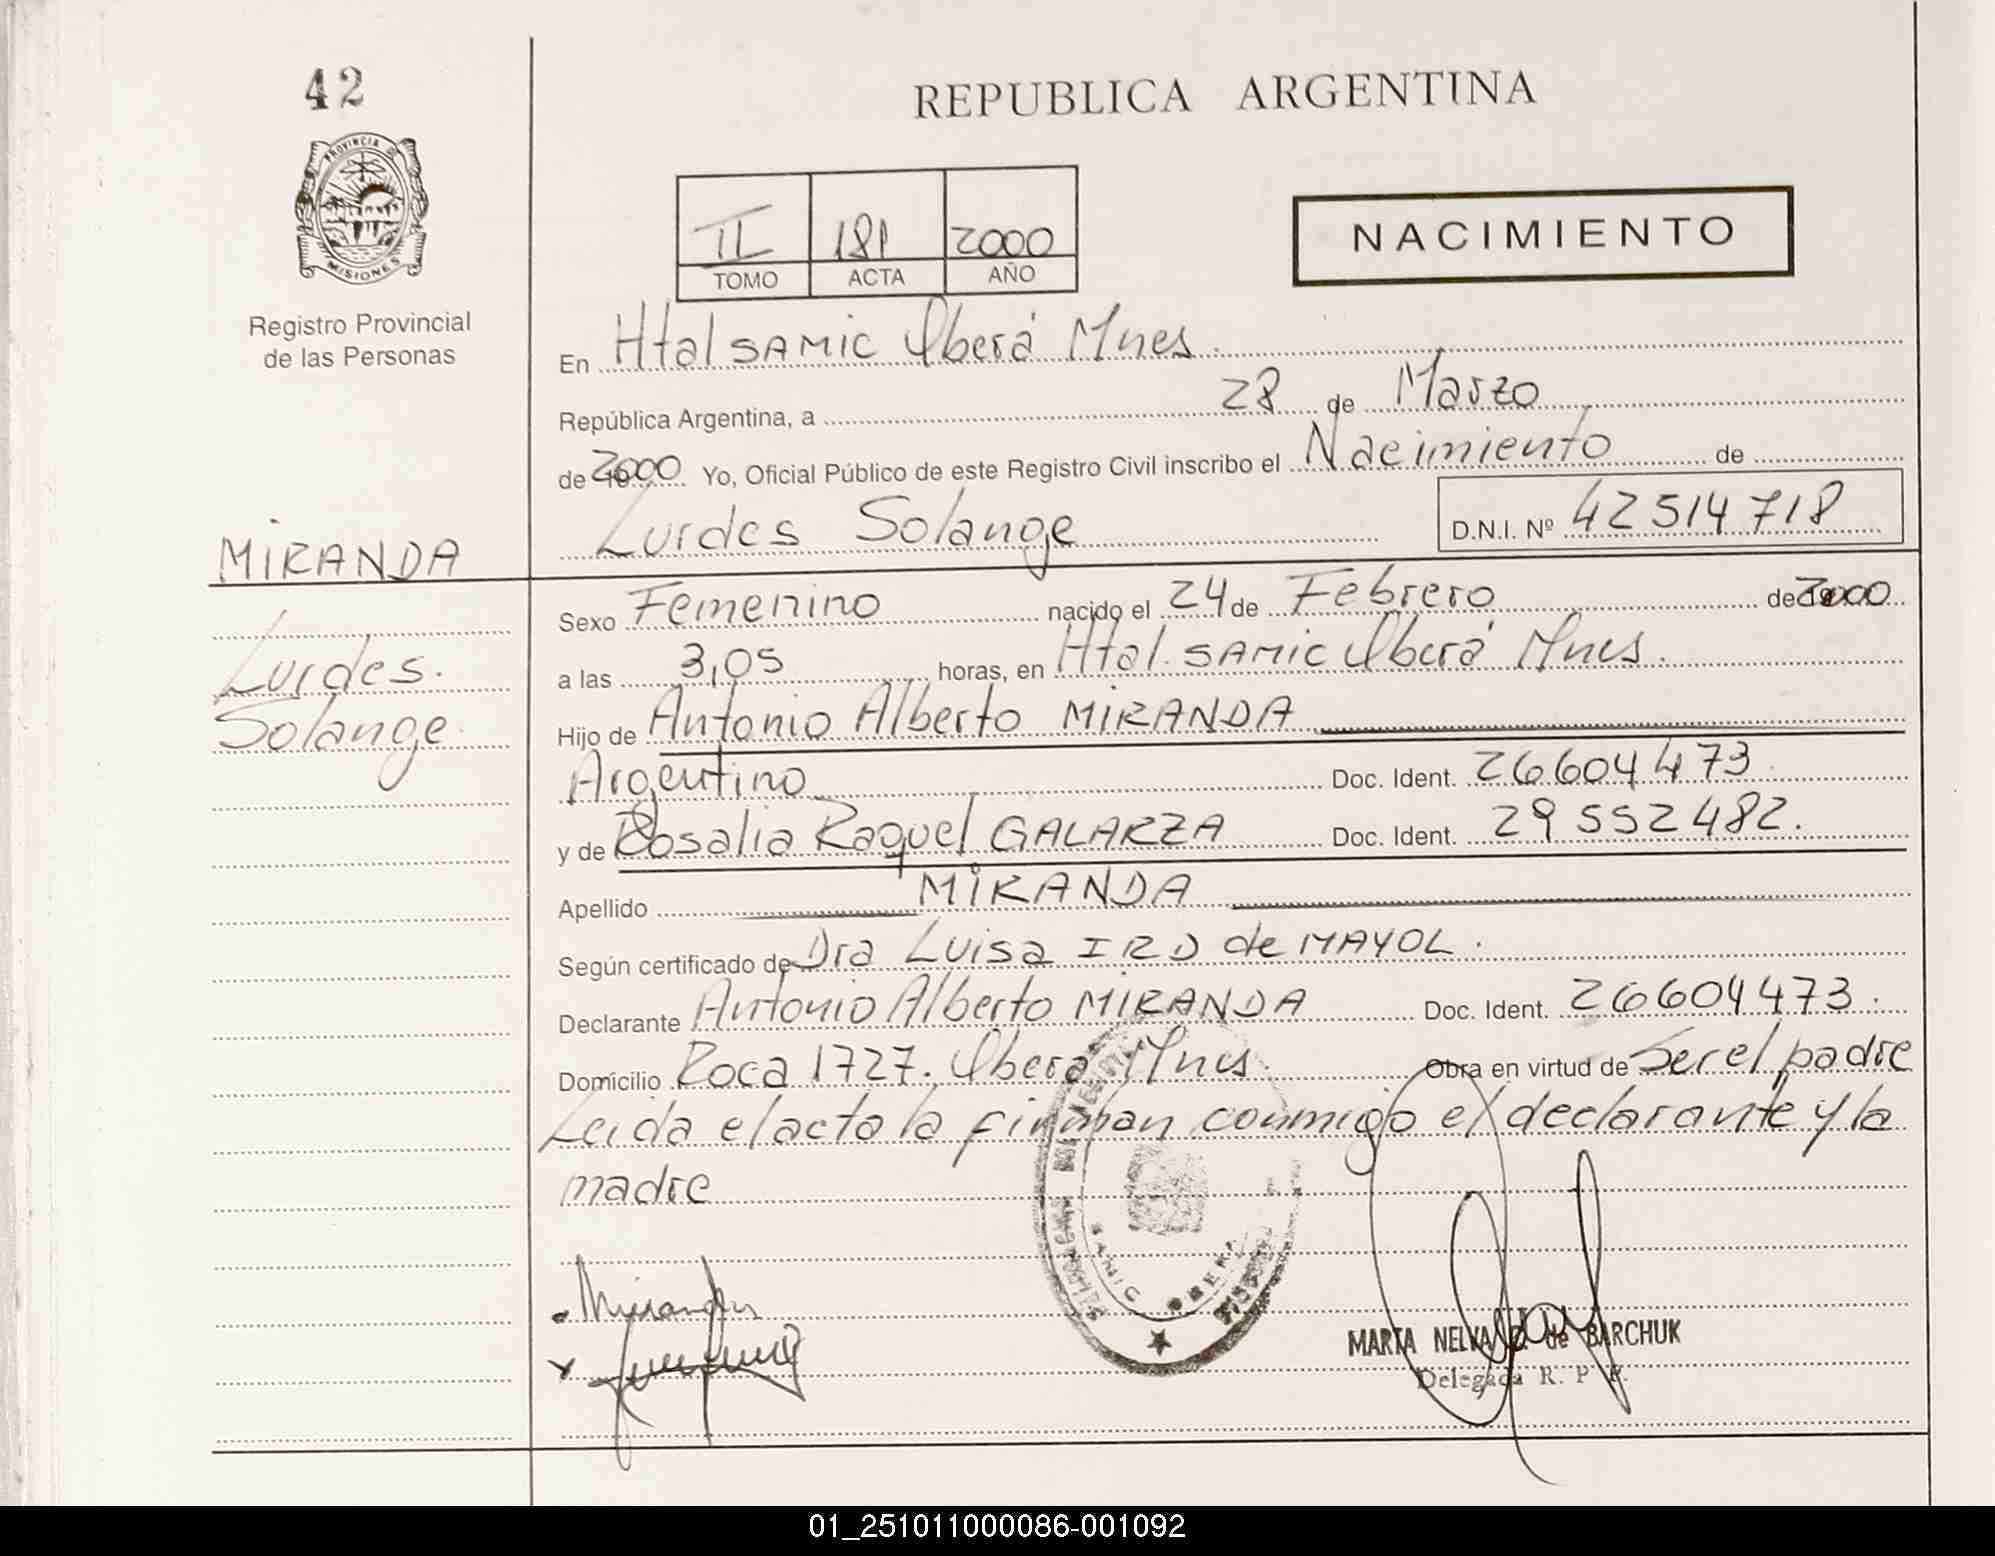 42
REPUBLICA ARGENTINA
PROVINCIA DE
MISIONES
Registro Provincial
de las Personas
II 181 2000
TOMO ACTA AÑO
NACIMIENTO
En Htal SAMIC Oberá Mnes.
República Argentina, a 28 de Marzo
de 2000 Yo, Oficial Público de este Registro Civil inscribo el Nacimiento de
Lurdes Solange D.N.I. Nº 42514718
MIRANDA
Lurdes.
Solange
Sexo Femenino nacido el 24 de Febrero de 2000
a las 3,05 horas, en Htal. SAMIC Oberá Mnes.
Hijo de Antonio Alberto MIRANDA
Argentino Doc. Ident. 26604473
y de Rosalia Raquel GALARZA Doc. Ident. 29552482.
Apellido MIRANDA
Según certificado de Dra Luisa IRD de MAYOL.
Declarante Antonio Alberto MIRANDA Doc. Ident. 26604473.
Domicilio Roca 1727. Oberá Mnes. Obra en virtud de Ser el padre
Leida el acta la firman conmigo el declarante y la
madre
SAMIC OBERA
Miranda
MARTA NELVA de BARCHUK
Delegada R. P.
01_251011000086-001092